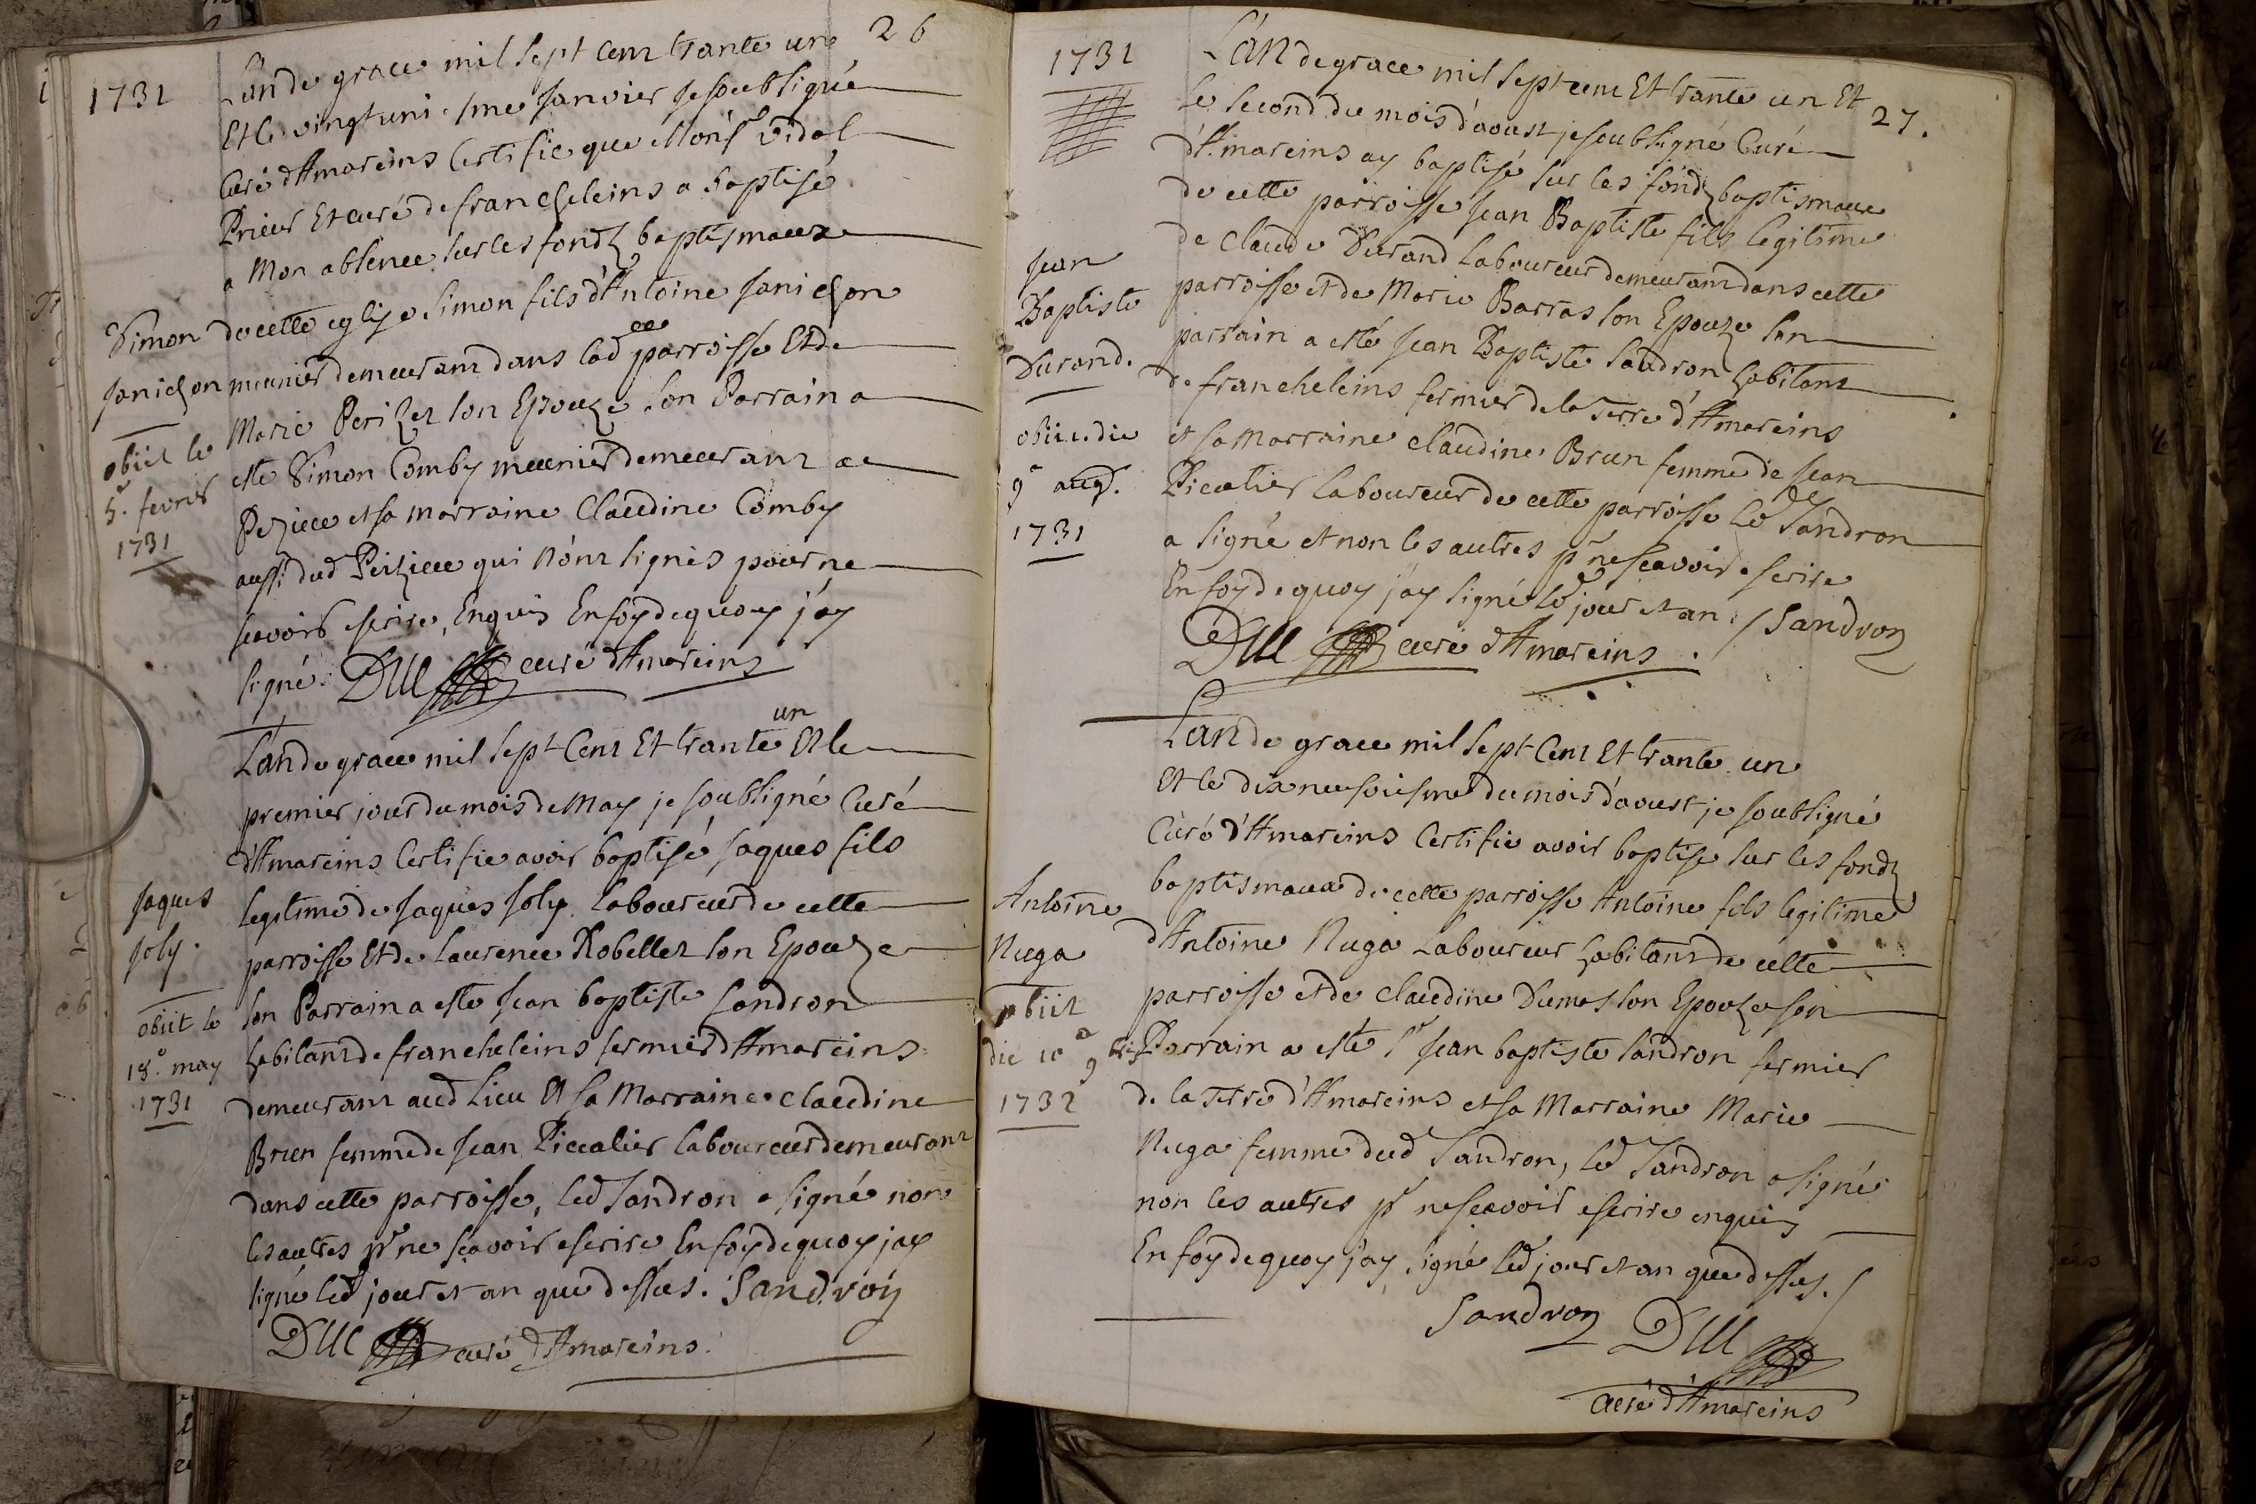 1731
26
L'an de grace mil sept cent trante un
Et le vingt uni esme Janvier Je soubsigné
Curé d'Amareins Certifie que Mons.r Vidal
Prieur Et curé de francheleins a baptisé
a Mon absence sur les fondz baptismaux
de cette eglize Simon fils d'Antoine Janichon
meunier demeurant dans lad. parroisse Et de
Marie Perizet son Epouze son Parrain a
este Simon Comby meunier demeurant au
Pezieu et sa marraine Claudine Comby
aussi dud Perzieu qui n'ónt signés pour ne
scavoir escrire, Enquis En foy de quoy j'ay
signé. DUC curé d'Amareins
Simon
Janichon
obiit le
5.e fevrier
1731
L'an de grace mil sept Cent Et trante un Et le
premier jour du mois de May je soubsigné Curé
d'Amareins Certifie avoir baptisé Jaques fils
legitime de Jaques Joly laboureur de cette
parroisse Et de Laurence Robellet son Epouze
son Parrain a este Jean baptiste Sandron
habitant de francheleins fermier d'Amareins
demeurant aud Lieu Et sa Marraine Claudine
Brun femme de Jean Piccatier laboureur demeurant
dans cette parroisse, led Sandron a signé non
les autres pr ne scavoir escrire En foy de quoy jay
signé led jour et an que dessus. Sandron
DUC curé d'Amareins.
Jaques
Joly.
obiit le
18.e may
1731
1731
27.
L'an de grace mil sept cent Et trante un Et
le second du mois d'aoust je soubsigné Curé
d'Amareins ay baptisé sur les fondz baptismaux
de cette parroisse Jean Baptiste fils legitime
de Claude Durand laboureur demeurant dans cette
parroisse et de Marie Barras son Epouze son
parrain a esté Jean Baptiste Sandron habitant
de francheleins fermier de la Terre d'Amareins
et sa Marraine Claudine Brun femme de Jean
Picatier laboureur de cette parroisse led Sandron
a signé et non les autres pr ne scavoir escrire
En foy de quoy j'ay signé led jour et an / Sandron
DUC curé d'Amareins.
Jean
Baptiste
Durand.
obiit die
9a aug.
1731
L'an de grace mil sept Cent Et trante un
Et le dix neufviesme du mois d'aoust je soubsigné
Curé d'Amareins Certifie avoir baptise sur les fondz
baptismaux de cette parroisse Antoine fils legitime
d'Antoine Nuga Laboureur habitant de cette
parroisse et de Claudine Dumas son Epouze son
Parrain a este Sr Jean baptiste Sandron fermier
de la Terre d'Amareins et sa Marraine Marie
Nuga femme dud Sandron, led Sandron a signé
non les autres pr ne scavoir escrire enquis
En foy de quoy j'ay signé led jour et an que dessus. /
Sandron DUC
curé d'Amareins
Antoine
Nuga
obiit
die 10a 9bris
1732